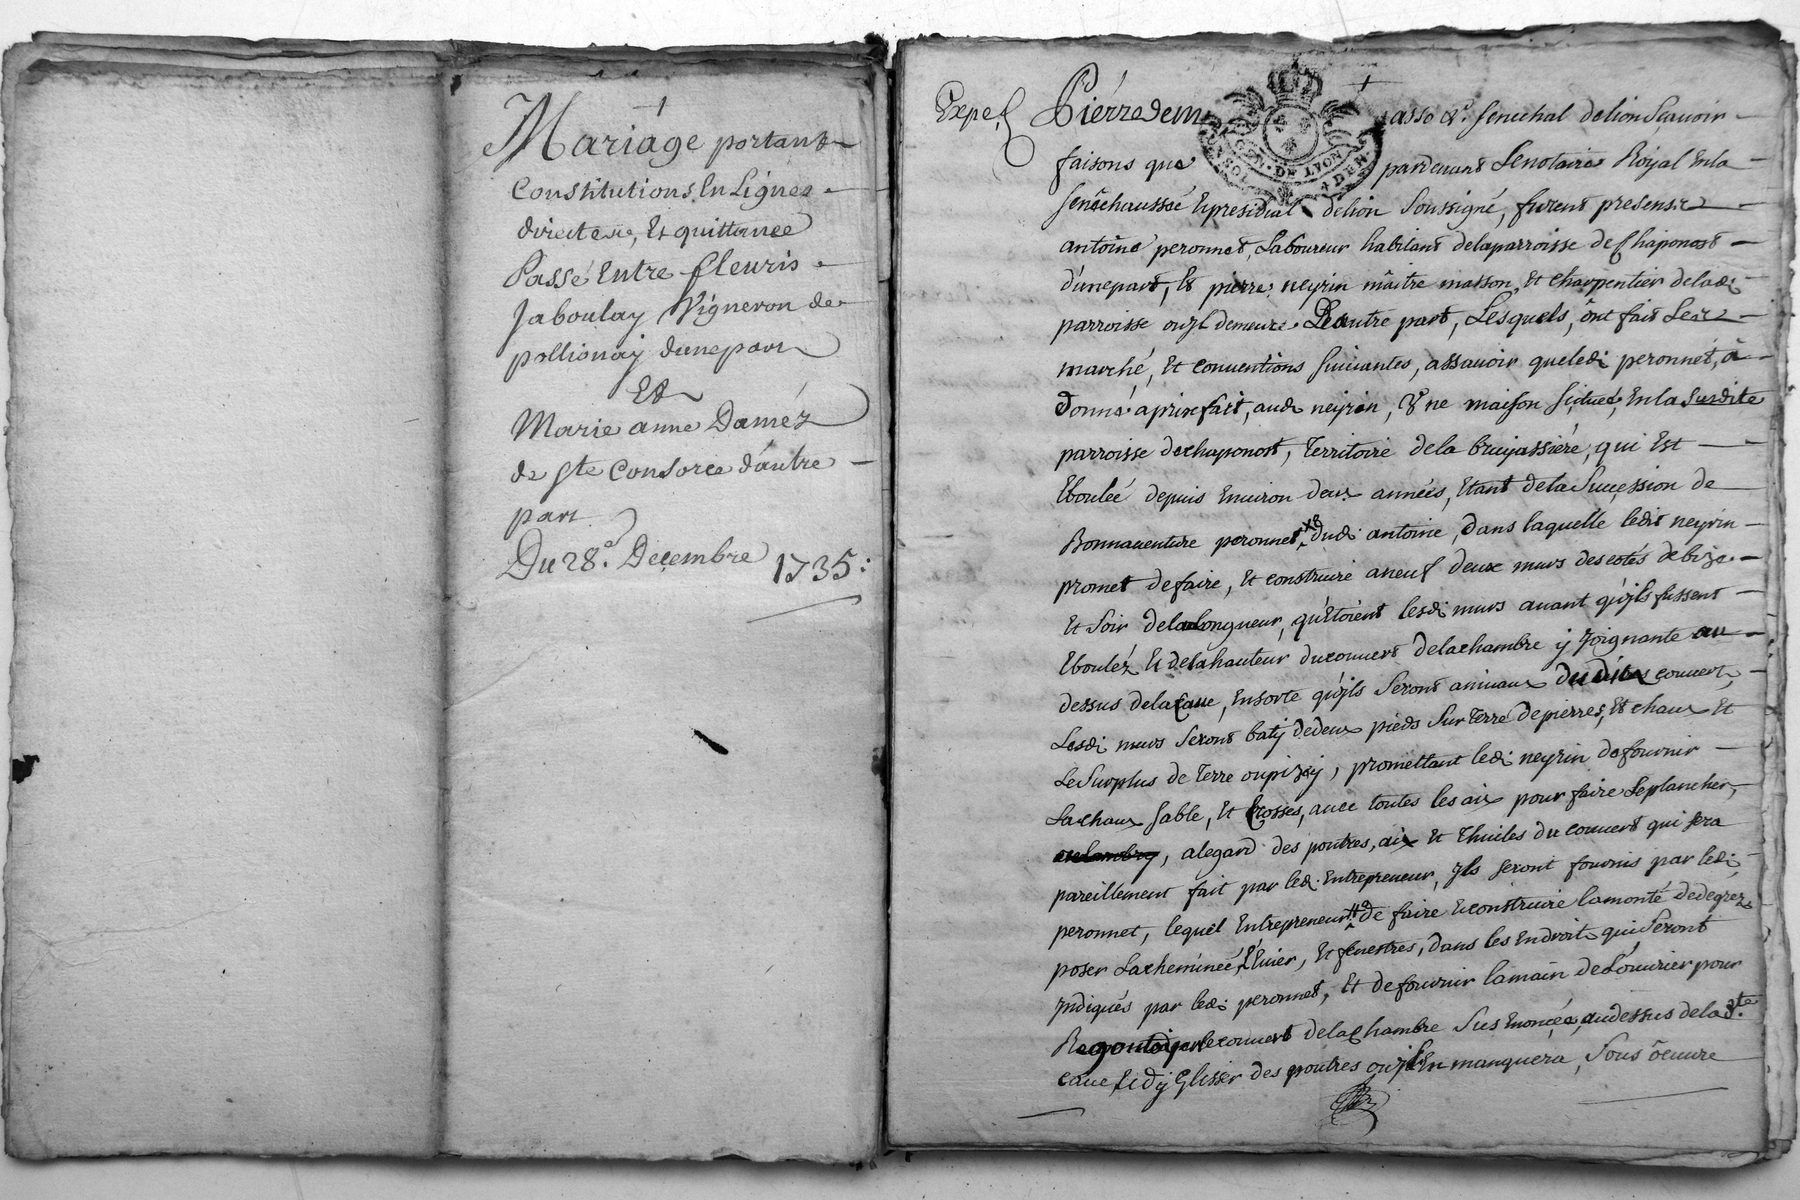 Mariage portant
Constitutions En Lignes
directe, Et quittance
Passé Entre fleuris
Jaboulay Vigneron de
pollionay dunepart
Et
Marie anne Daméz
de Ste Consorce d'autre
part
Du 28.e Decembre 1735:
Expe.
Pierre dem asso Sr. Senechal delion Scavoir
faisons que pardevant Lenotaire Royal Enla
GEN. DE LYON
senéchaussée Et presidial delion Soussigné, furent presents
antoine peronnet, Laboureur habitant delaparroisse de Chaponost
d'unepart, Et pierre neyrin maître masson, Et charpentier deladi
parroisse ouyl demeure Dautre part, Lesquels, ont fait Les
marché, Et conventions suivantes, assavoir queledi peronnet, à
donné aprixfait, audi neyrin, Une maison située, Enla Susdite
parroisse dechaponost, Territoire dela bruyassiere, qui Est
Eboulée depuis Environ deux années, Etant delaSucession de
Bonnaventure peronnet dudi antoine, dans laquelle ledit neyrin
promet defaire, Et construire aneuf deux murs descotés debize
Et Soir delalongueur, qu'Etoient lesdi murs avant qu'ils fussent
Ebouléz Et delahauteur ducouvert delachambre y Joignante au
dessus delaCave, Ensorte qu'ils Seront aniveaux du couvert,
Lesdi murs Seront baty dedeux pieds Sur Terre depierres, Et chaux Et
LeSurplus de Terre oupizey, promettant ledi neyrin defournir
Lachaux sable, Et Crosses, avec toutes les aix pour faire Leplancher,
alegard des poutres, aix Et Thuiles du couvert qui sera
pareillement fait par ledi Entrepreneur, yls seront fournis par ledi
peronnet, lequel Entrepreneur de faire Et construire lamonté dedegrez
poser Lacheminée, L'Evier, Et fenestres, dans les Endroits quiSeront
Indiqués par ledi peronnet, Et defournir lamain deLouvrier pour
lecouvert delaChambre Sus Enoncée, audessus delade.
cave Et dy Glisser des poutres ouylEn manquera, Sous oeuvre